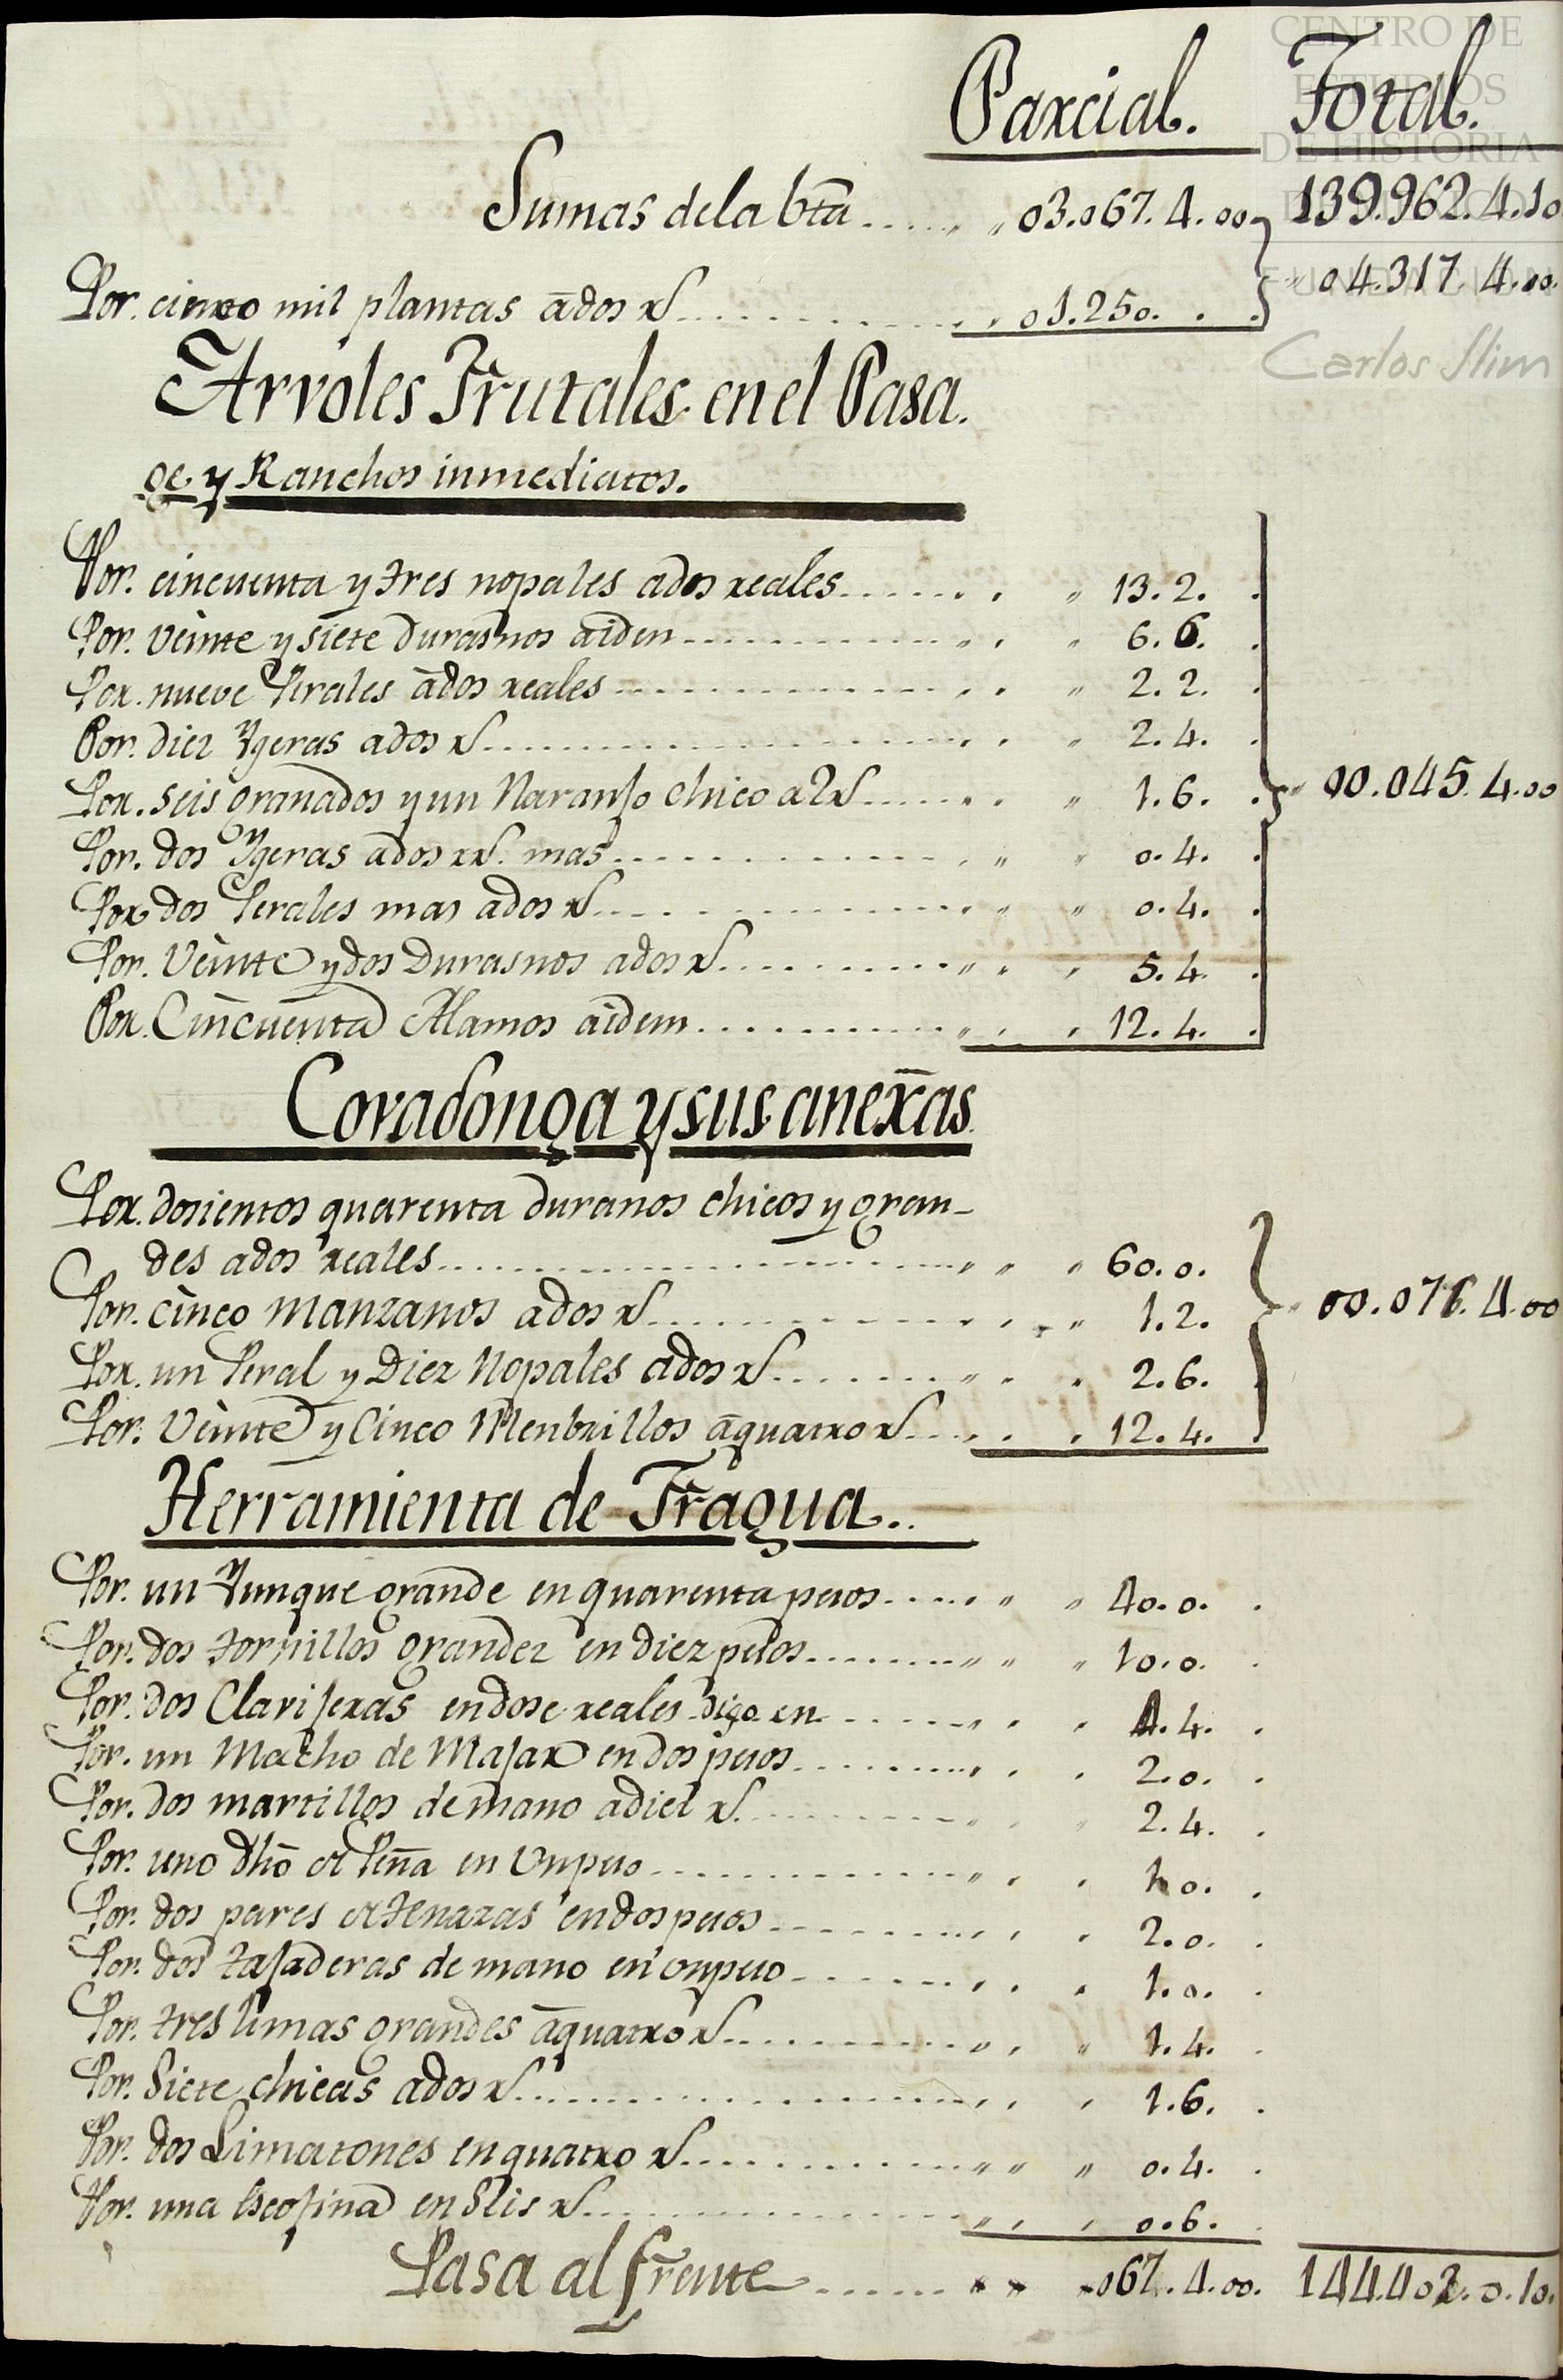 CENTRO DE
ESTUDIOS
DE HISTORIA
Carlos Slim
Parcial. Total.
Sumas dela bta ...... 03.067.4.00 139.962.4.10
04.317.4.00.
Por. cinco mil plantas ados rs. ...... 01.250.
Arvoles Frutales en el Pasa.
ge. y Ranchos inmediatos.
Por. cincuenta y tres nopales ados reales ...... 13.2.
Por. veinte y siete Durasnos aiden ...... 6.6.
Por. nueve Perales ados reales ...... 2.2.
Por. diez Ygeras ados rs ...... 2.4.
Por. seis granados y un Naranjo chico a 2 rs ...... 1.6. 00.045.4.00
Por. dos Ygeras ados rs. mas ...... 0.4.
Por dos Perales mas ados rs ...... 0.4.
Por. Veinte y dos Durasnos ados rs ...... 5.4.
Por. Cincuenta Alamos aidem ...... 12.4.
Covadonga y sus anexas
Por. dosientos quarenta duranos chicos y gran-
des ados reales ...... 60.0.
Por. cinco manzanos ados rs ...... 1.2. 00.076.4.00
Por. un Peral y Diez Nopales ados rs ...... 2.6.
Por. Veinte y Cinco Menbrillos aquatro rs ...... 12.4.
Herramienta de Fragua..
Por. un Yunque grande en quarenta pesos ...... 40.0.
Por. dos tornillos grandez en diez pesos ...... 10.0.
Por. dos Clavijeras endose reales digo en ...... 4.4.
Por. un Macho de Majar en dos pesos ...... 2.0.
Por. dos martillos de mano adiez rs. ...... 2.4.
Por. uno dho de Peña en Unpeso ...... 1.0.
Por. dos pares de tenazas endos pesos ...... 2.0.
Por. dos tajaderas de mano en unpeso ...... 1.0.
Por. tres limas grandes aquatro rs ...... 1.4.
Por. Siete chicas ados rs ...... 1.6.
Por. dos Limatones en quatro rs ...... 0.4.
Por. una Escofina en Seis rs ...... 0.6.
Pasa al frente ...... 067.4.00. 144.402.0.10.